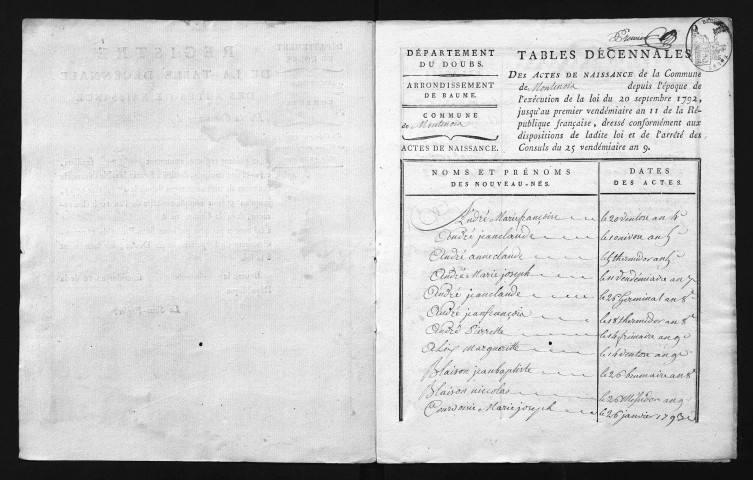 DÉPARTEMENT
DU DOUBS.
ARRONDISSEMENT
DE BAUME.
COMMUNE
de Montenois
ACTES DE NAISSANCE.
TABLES DÉCENNALES
DES ACTES DE NAISSANCE de la Commune
de Montenois depuis l'époque de
l'exécution de la loi du 20 septembre 1792,
jusqu'au premier vendémiaire an 11 de la Ré-
publique française, dressé conformément aux
dispositions de ladite loi et de l'arrêté des
Consuls du 25 vendémiaire an 9.
NOMS ET PRÉNOMS
DES NOUVEAU-NÉS.
DATES
DES ACTES.
André Marie françoise le 20 ventose an 4e
André jeanclaude le 10 nivose an 5e
André anneclaude le 5 thermidor an 5e
André Marie joseph le 11 vendémiaire an 7e
André jeanclaude le 26 Germinal an 8e
André jeanfrançois le 18 thermidor an 8e
André Pierrette le 14 frimaire an 9e
marguerite le 14 ventose an 9e
Blaison jeanbaptiste le 26 brumaire an 8e
Blaison niccolas le 26 Messidor an 9e
Marie joseph le 26 janvier 1793